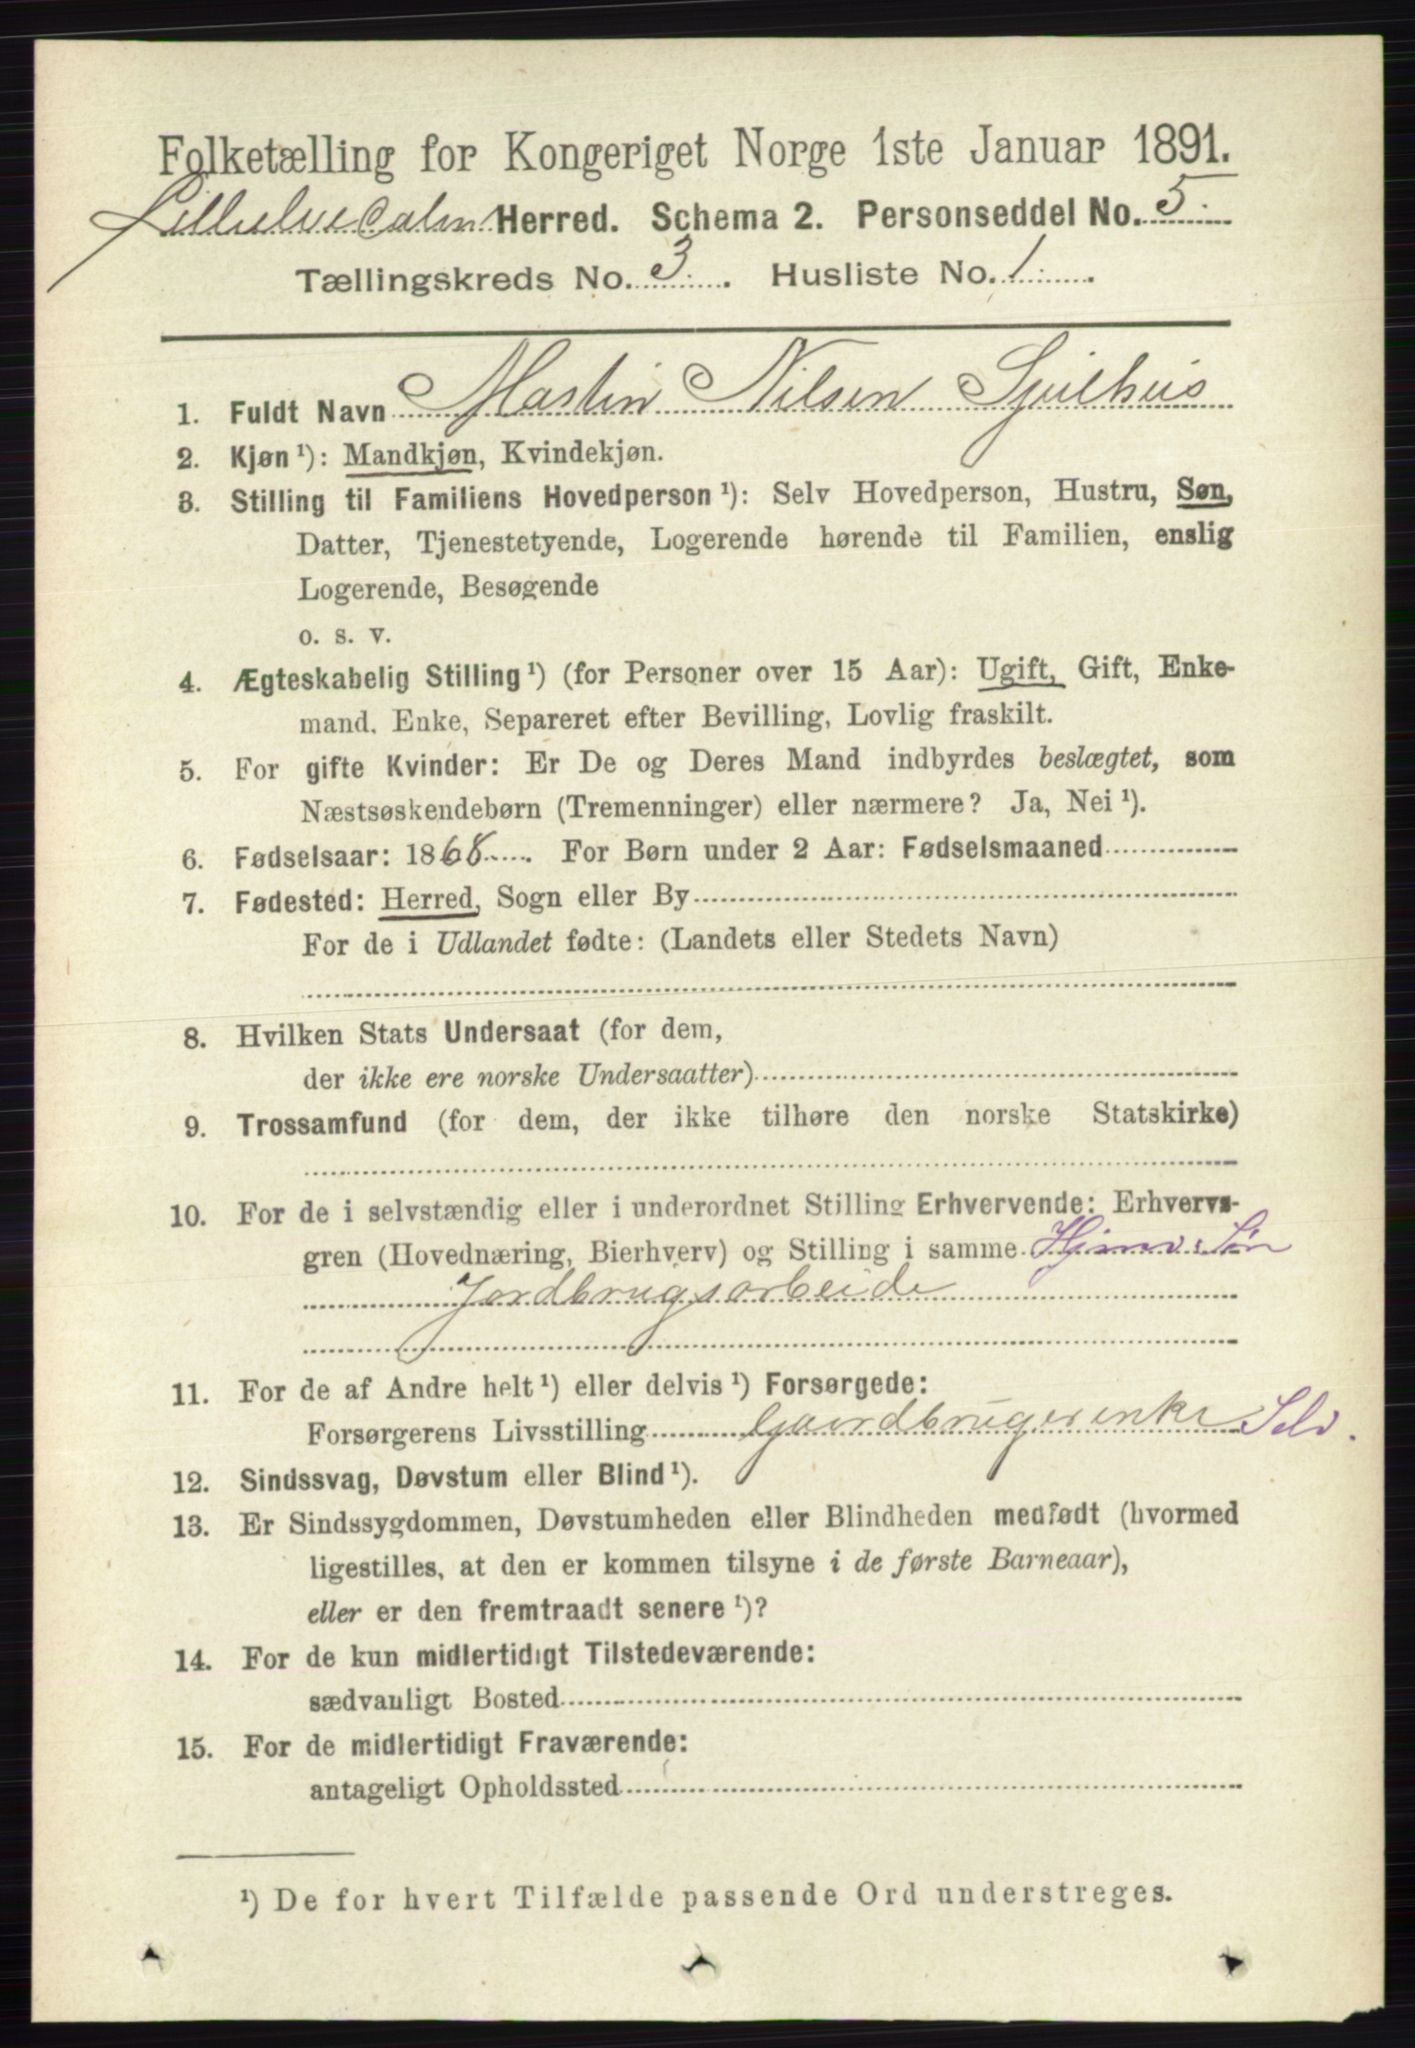 Folketælling for Kongeriget Norge 1ste Januar 1891.
Lilleelvedalen Herred. Schema 2. Personseddel No. 5.
Tællingskreds No. 3. Husliste No. 1.
1. Fuldt Navn Martin Nilsen Sjulhus
2. Kjøn ¹): Mandkjøn, Kvindekjøn.
3. Stilling til Familiens Hovedperson ¹): Selv Hovedperson, Hustru, Søn,
Datter, Tjenestetyende, Logerende hørende til Familien, enslig
Logerende, Besøgende
o. s. v.
4. Ægteskabelig Stilling ¹) (for Personer over 15 Aar): Ugift, Gift, Enke-
mand, Enke, Separeret efter Bevilling, Lovlig fraskilt.
5. For gifte Kvinder: Er De og Deres Mand indbyrdes beslægtet, som
Næstsøskendebørn (Tremenninger) eller nærmere? Ja, Nei ¹).
6. Fødselsaar: 1868. For Børn under 2 Aar: Fødselsmaaned
7. Fødested: Herred, Sogn eller By
For de i Udlandet fødte: (Landets eller Stedets Navn)
8. Hvilken Stats Undersaat (for dem,
der ikke ere norske Undersaatter)
9. Trossamfund (for dem, der ikke tilhøre den norske Statskirke)
10. For de i selvstændig eller i underordnet Stilling Erhvervende: Erhvervs-
gren (Hovednæring, Bierhverv) og Stilling i samme Hjemv. Søn
Jordbrugsarbeide
11. For de af Andre helt ¹) eller delvis ¹) Forsørgede:
Forsørgerens Livsstilling Gaardbrugerenke Selv.
12. Sindssvag, Døvstum eller Blind ¹).
13. Er Sindssygdommen, Døvstumheden eller Blindheden medfødt (hvormed
ligestilles, at den er kommen tilsyne i de første Barneaar),
eller er den fremtraadt senere ¹)?
14. For de kun midlertidigt Tilstedeværende:
sædvanligt Bosted
15. For de midlertidigt Fraværende:
antageligt Opholdssted
¹) De for hvert Tilfælde passende Ord understreges.